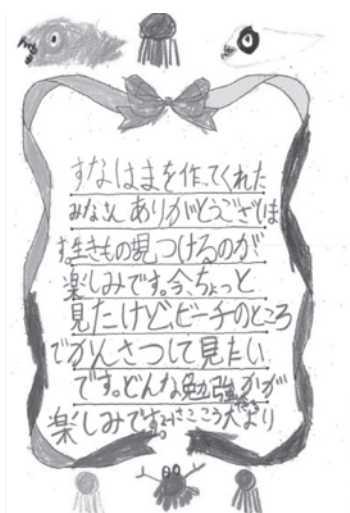 すなはまを作ってくれた
みなさん ありがとうございま
す。生きもの見つけるのが
楽しみです。今、ちょっと
見たけど、ビーチのところ
でかんさつして見たい
です。どんな勉強かが
楽しみです。
より